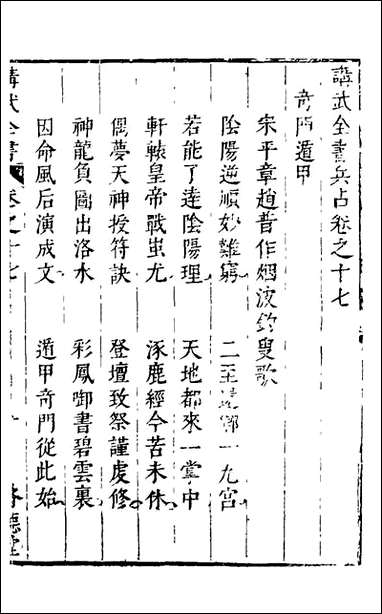 講武全書兵占卷之十七
奇門遁甲
宋平章趙普作烟波釣叟歌
陰陽逆順妙難窮　二至還鄉一九宮
若能了達陰陽理　天地都來一掌中
軒轅皇帝戰蚩尤　涿鹿經今苦未休
偶夢天神授符訣　登壇致祭謹虔修
神龍負圖出洛水　彩鳳啣書碧雲裏
因命風后演成文　遁甲奇門從此始
講武全書　卷之十七